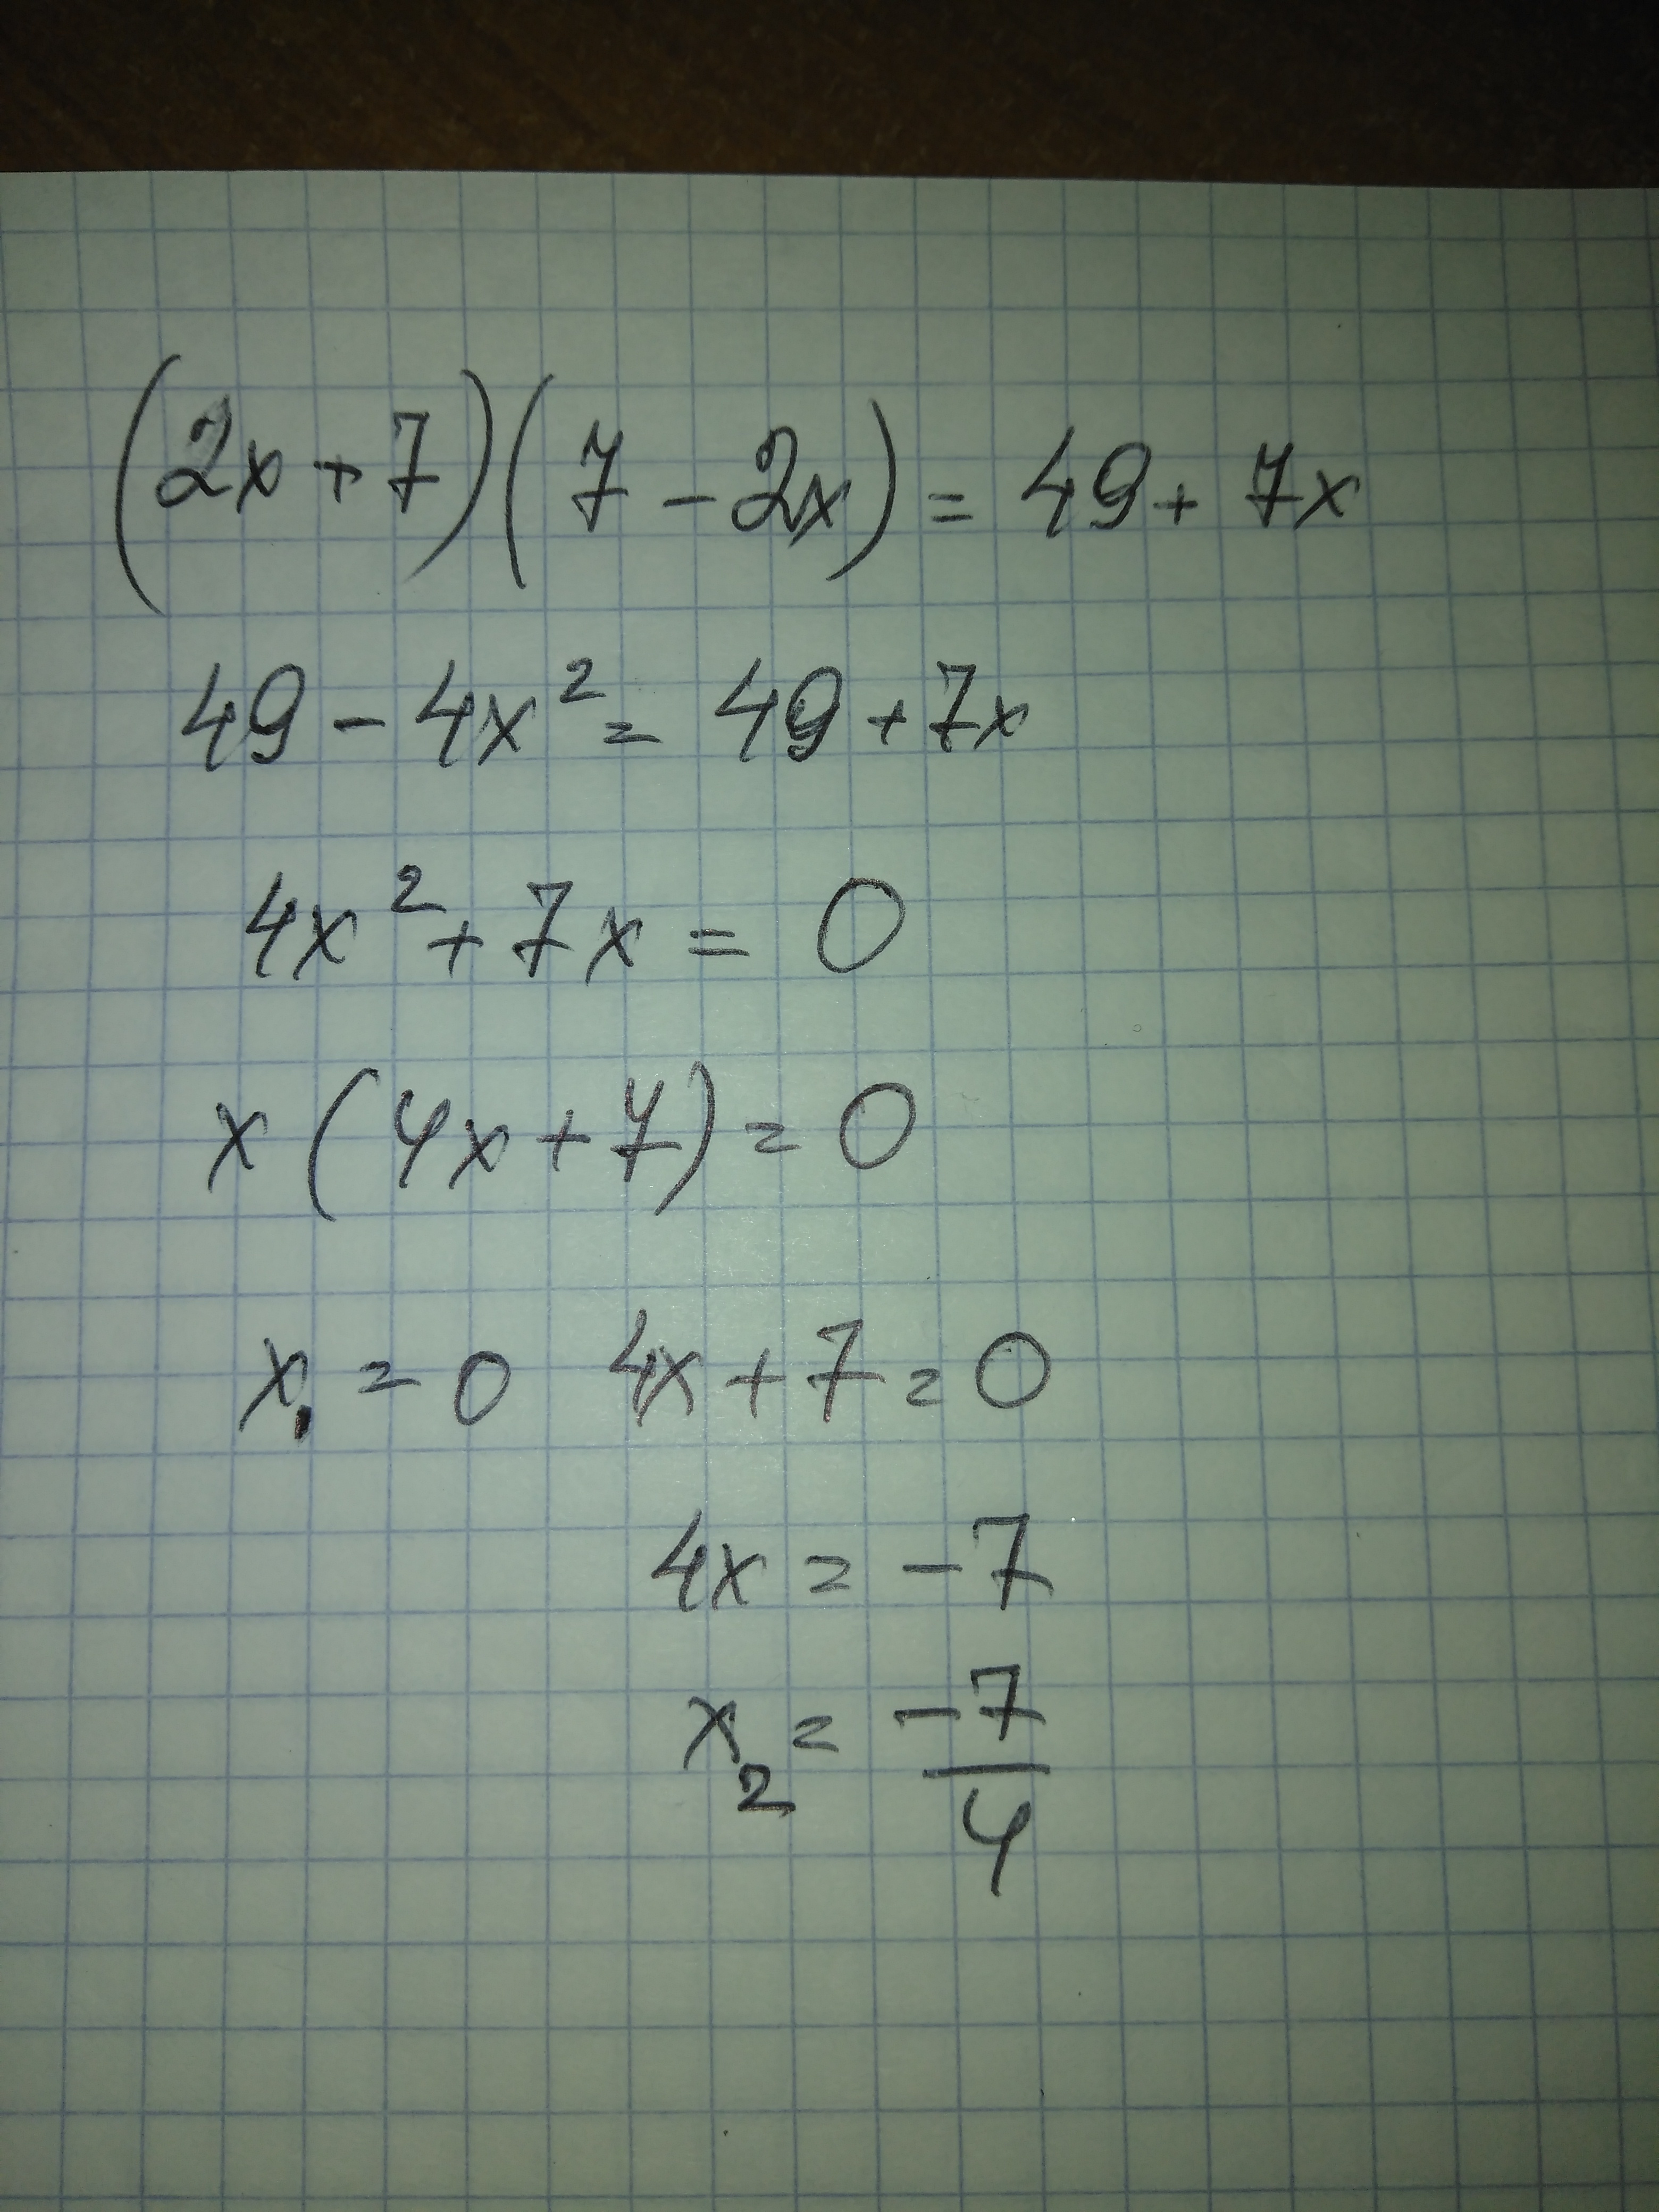 (2x+7)(7-2x)=49+7x
49-4x²=49+7x
4x²+7x=0
x(4x+7)=0
x₁=0 4x+7=0
4x=-7
x₂=-7/4